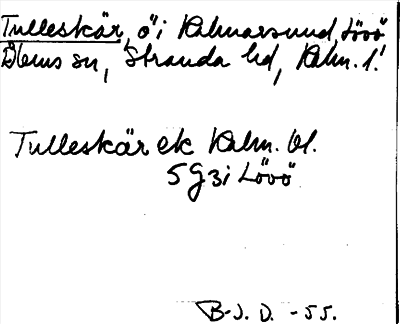 Tulleskär, ö i Kalmarsund, Lövö
Ålems sn, Stranda hd, Kalm. l.
Tulleskär ek Kalm. bl.
5G3i Lövö
B-J. D. -55.